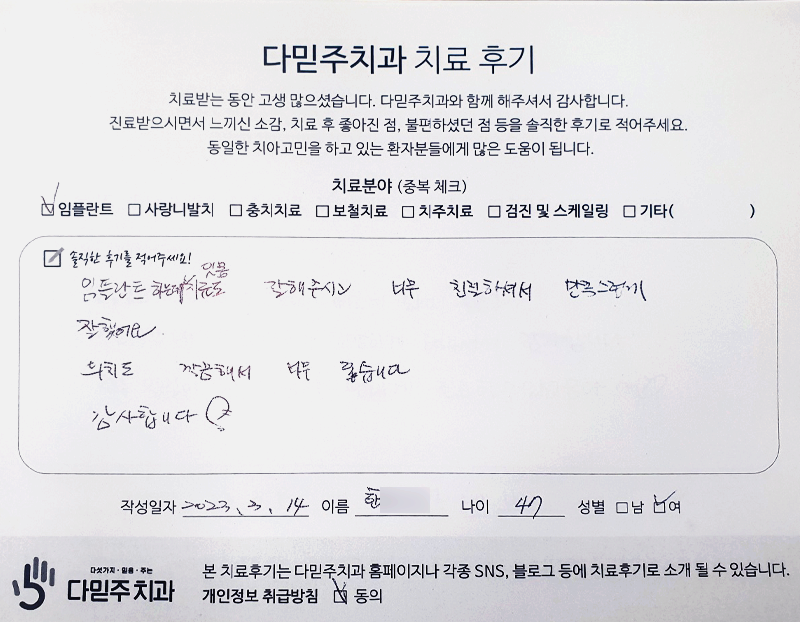 다믿주치과 치료 후기
치료받는 동안 고생 많으셨습니다. 다믿주치과와 함께 해주셔서 감사합니다.
진료받으시면서 느끼신 소감, 치료 후 좋아진 점, 불편하셨던 점 등을 솔직한 후기로 적어주세요.
동일한 치아고민을 하고 있는 환자분들에게 많은 도움이 됩니다.
치료분야 (중복 체크)
임플란트 사랑니발치 충치치료 보철치료 치주치료 검진 및 스케일링 기타( )
솔직한 후기를 적어주세요!
잇몸
임플란트 하는데 치료도 잘해주시고 너무 친절하셔서 만족스럽게
잘했어요.
위치도 깔끔해서 너무 좋습니다
감사합니다
작성일자 2023. 3. 14 이름 한 나이 47 성별 남 여
다섯가지·믿음·주는
다믿주치과
본 치료후기는 다믿주치과 홈페이지나 각종 SNS, 블로그 등에 치료후기로 소개 될 수 있습니다.
개인정보 취급방침 동의